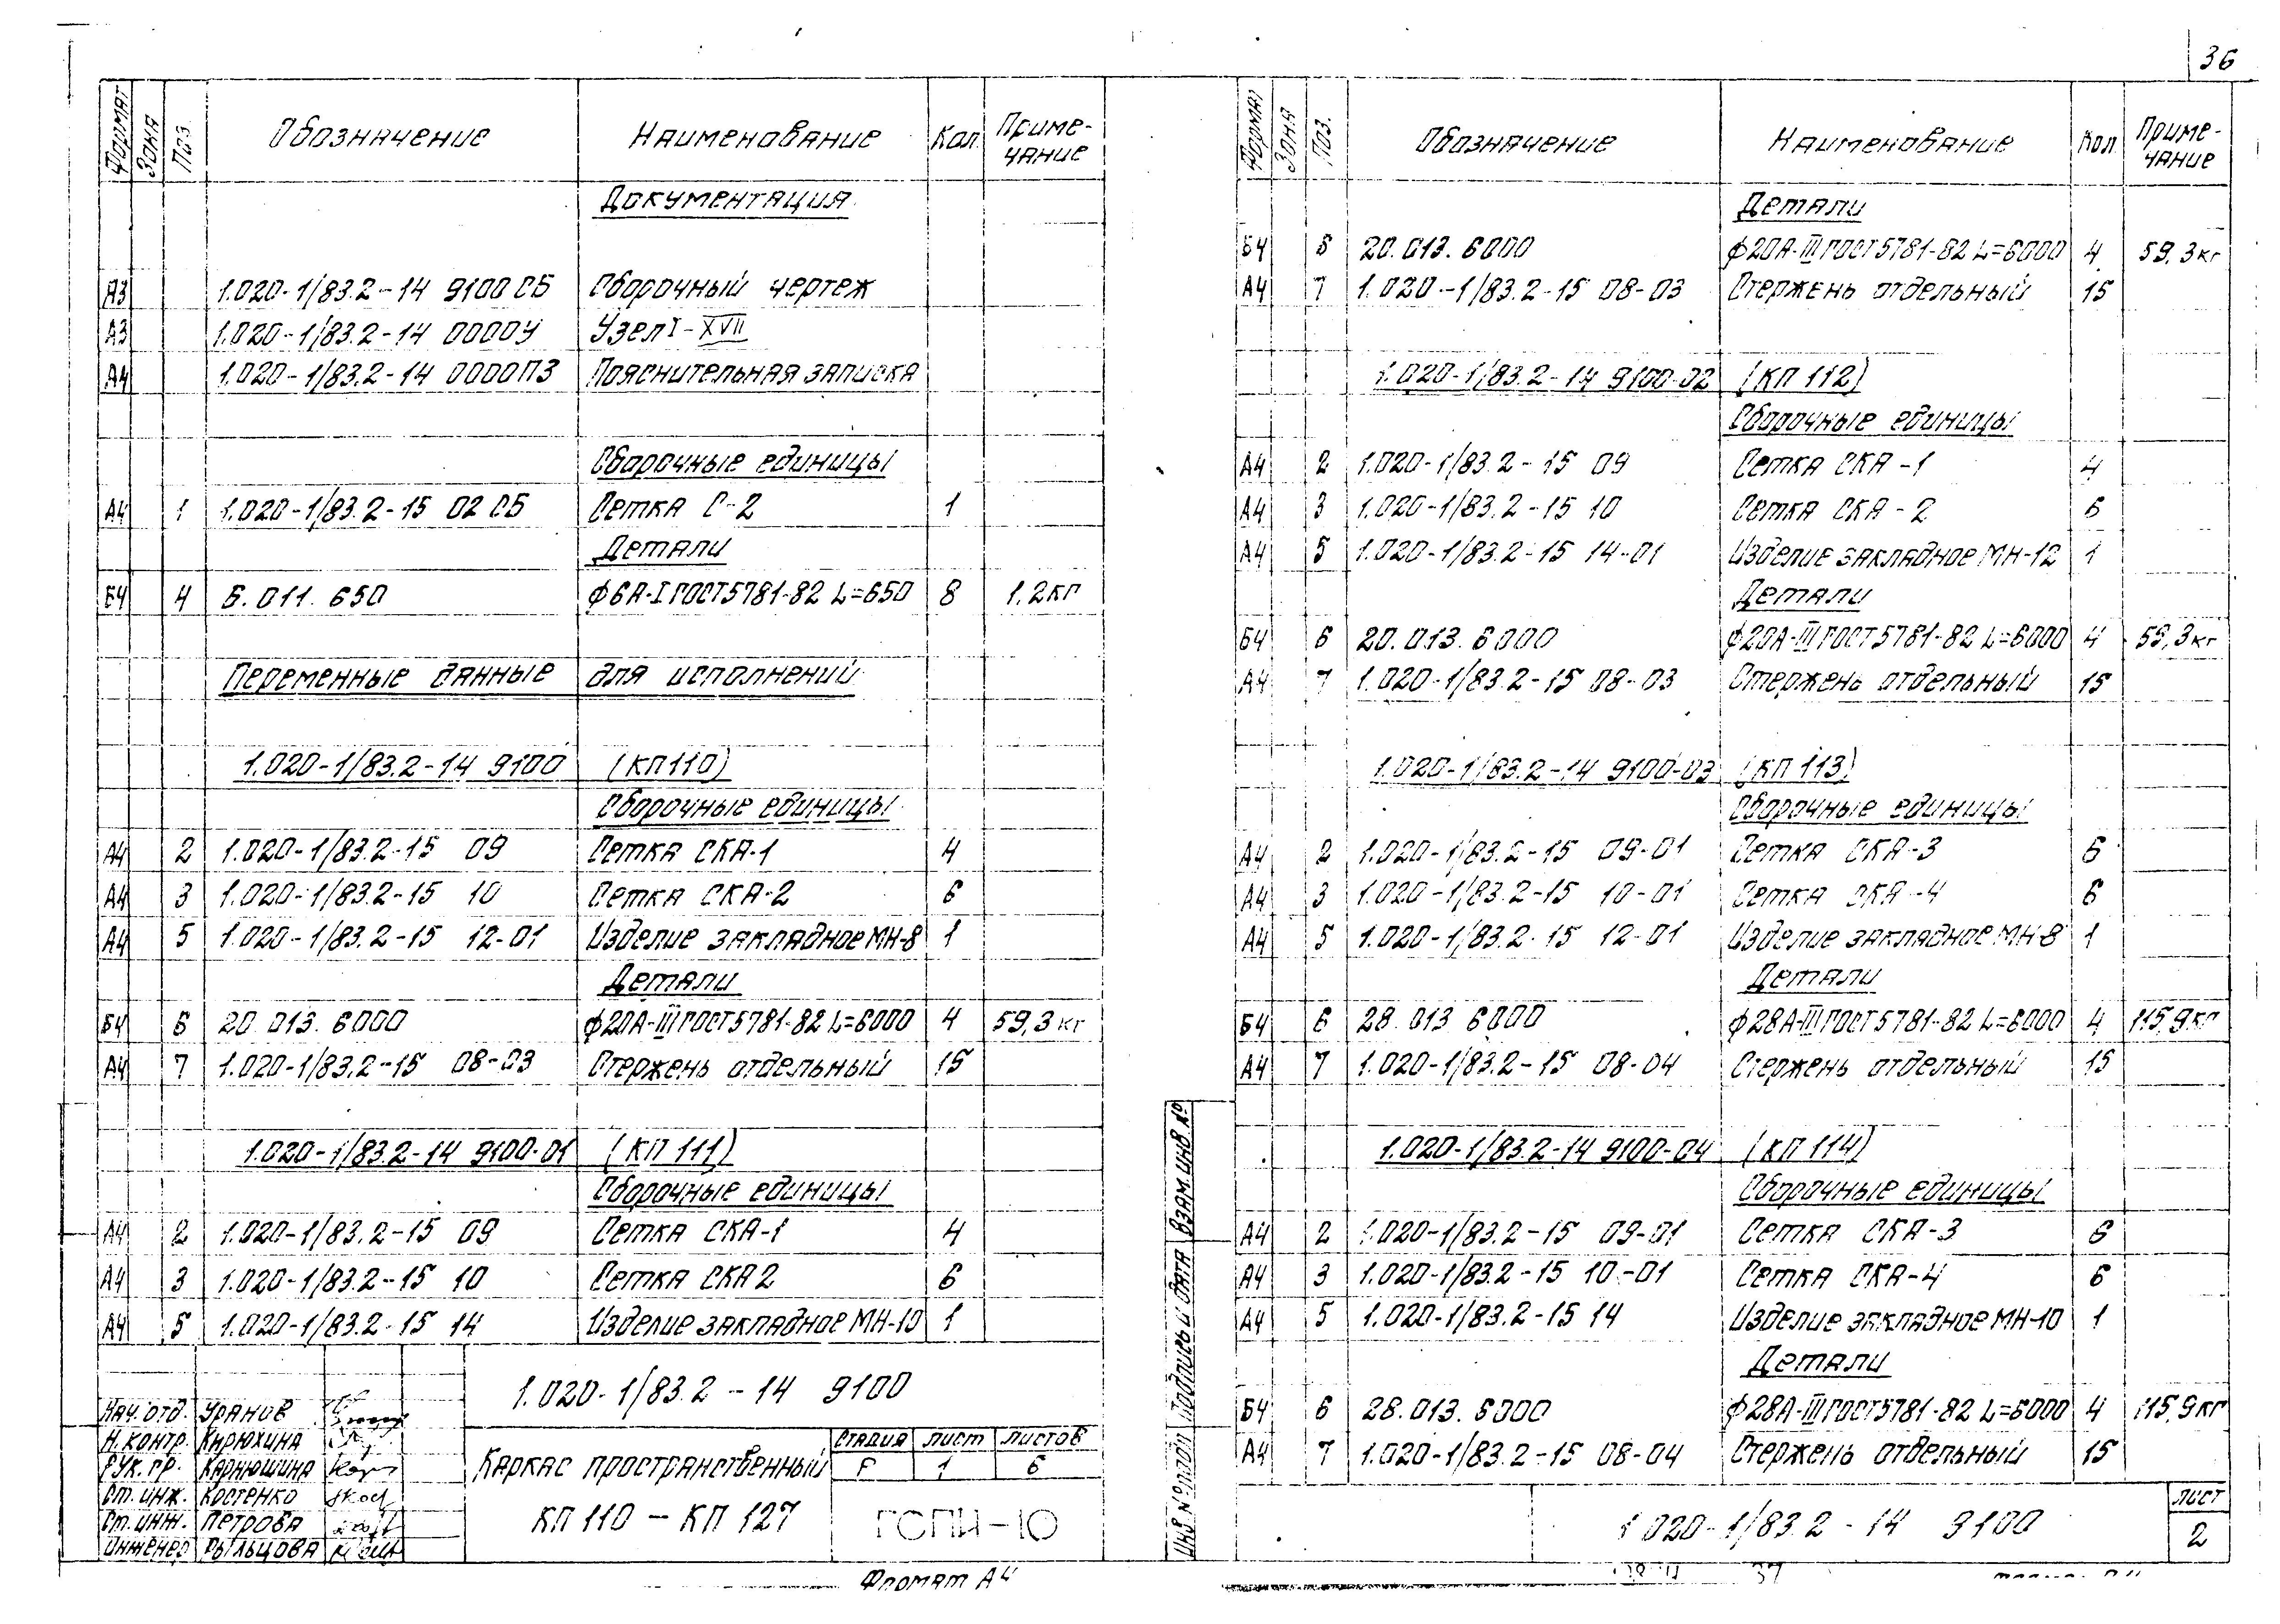 36
Формат Зона Поз. Обозначение Наименование Кол. Приме-чание
Документация
А3 1.020-1/83.2-14 9100СБ Сборочный чертеж
А3 1.020-1/83.2-14 0000У Узел I-XVII
А4 1.020-1/83.2-14 0000ПЗ Пояснительная записка
Сборочные единицы
А4 1 1.020-1/83.2-15 02 СБ Сетка С-2 1
Детали
Б4 4 6.011.650 ф6А-I ГОСТ 5781-82 L=650 8 1,2кг
Переменные данные для исполнений
1.020-1/83.2-14 9100 (КП110)
Сборочные единицы
А4 2 1.020-1/83.2-15 09 Сетка СКА-1 4
А4 3 1.020-1/83.2-15 10 Сетка СКА-2 6
А4 5 1.020-1/83.2-15 12-01 Изделие закладное МН-8 1
Детали
Б4 6 20.013.6000 ф20А-III ГОСТ 5781-82 L=6000 4 59,3 кг
А4 7 1.020-1/83.2-15 08-03 Стержень отдельный 15
1.020-1/83.2-14 9100-01 (КП 111)
Сборочные единицы
А4 2 1.020-1/83.2-15 09 Сетка СКА-1 4
А4 3 1.020-1/83.2-15 10 Сетка СКА 2 6
А4 5 1.020-1/83.2-15 14 Изделие закладное МН-10 1
1.020-1/83.2-14 9100
Нач. отд. Уранов
Н. контр. Кирюхина
Рук. гр. Карнюшина
Ст. инж. Костенко
Ст. инж. Петрова
Инженер Рыльцова
Каркас пространственный
КП 110 - КП 127
Стадия Лист Листов
Р 1 6
ГСПИ-10
Формат А4
Формат Зона Поз. Обозначение Наименование Кол. Приме-чание
Детали
Б4 6 20.013.6000 ф20А-III ГОСТ 5781-82 L=6000 4 59,3кг
А4 7 1.020-1/83.2-15 08-03 Стержень отдельный 15
1.020-1/83.2-14 9100-02 (КП 112)
Сборочные единицы
А4 2 1.020-1/83.2-15 09 Сетка СКА-1 4
А4 3 1.020-1/83.2-15 10 Сетка СКА-2 6
А4 5 1.020-1/83.2-15 14-01 Изделие закладное МН-12 1
Детали
Б4 6 20.013.6000 ф20А-III ГОСТ 5781-82 L=6000 4 59,3кг
А4 7 1.020-1/83.2-15 08-03 Стержень отдельный 15
1.020-1/83.2-14 9100-03 (КП 113)
Сборочные единицы
А4 2 1.020-1/83.2-15 09-01 Сетка СКА-3 6
А4 3 1.020-1/83.2-15 10-01 Сетка СКА-4 6
А4 5 1.020-1/83.2-15 12-01 Изделие закладное МН-8 1
Детали
Б4 6 28.013.6000 ф28А-III ГОСТ 5781-82 L=6000 4 115,9кг
А4 7 1.020-1/83.2-15 08-04 Стержень отдельный 15
1.020-1/83.2-14 9100-04 (КП 114)
Сборочные единицы
А4 2 1.020-1/83.2-15 09-01 Сетка СКА-3 6
А4 3 1.020-1/83.2-15 10-01 Сетка СКА-4 6
А4 5 1.020-1/83.2-15 14 Изделие закладное МН-10 1
Детали
Б4 6 28.013.6000 ф28А-III ГОСТ 5781-82 L=6000 4 115,9кг
А4 7 1.020-1/83.2-15 08-04 Стержень отдельный 15
Инв. № подл. Подпись и дата Взам. инв. №
1.020-1/83.2-14 9100
Лист
2
37